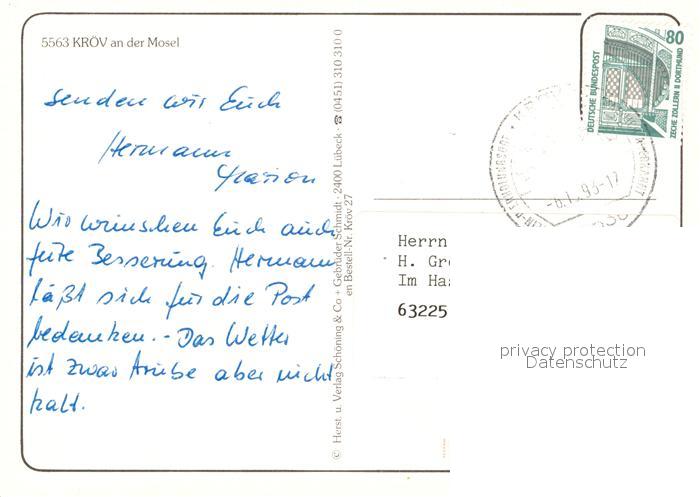 5563 KRÖV an der Mosel
senden wir Euch
Hermann
Marion
Wir wünschen Euch auch
gute Besserung. Hermann
läßt sich für die Post
bedanken. - Das Wetter
ist zwar trübe aber nicht
kalt.
© Herst. u. Verlag Schöning & Co + Gebrüder Schmidt · 2400 Lübeck · ☎ (04 51) 310 310 0
en Bestell-Nr. Kröv 27
80
DEUTSCHE BUNDESPOST
ZECHE ZOLLERN II DORTMUND
93-17
Herrn
H. Gr
Im Ha
63225
privacy protection
Datenschutz